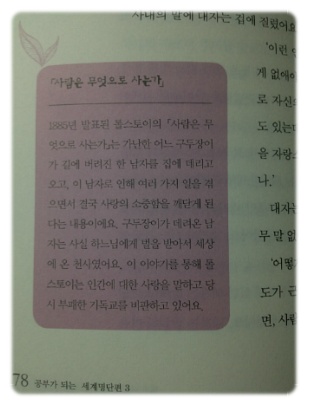 사내의 말에 대자는 집에 질렸어요
「사람은 무엇으로 사는가」
'이런
게 없애이
로 자신
도 있는데
을 자랑
나.'
대자는
무 말 없
'어떻
도가 근
면, 사람
1885년 발표된 톨스토이의 「사람은 무
엇으로 사는가」는 가난한 어느 구두장이
가 길에 버려진 한 남자를 집에 데리고
오고, 이 남자로 인해 여러 가지 일을 겪
으면서 결국 사랑의 소중함을 깨닫게 된
다는 내용이에요. 구두장이가 데려온 남
자는 사실 하느님에게 벌을 받아서 세상
에 온 천사였어요. 이 이야기를 통해 톨
스토이는 인간에 대한 사랑을 말하고 당
시 부패한 기독교를 비판하고 있어요.
78 공부가 되는 세계명단편 3